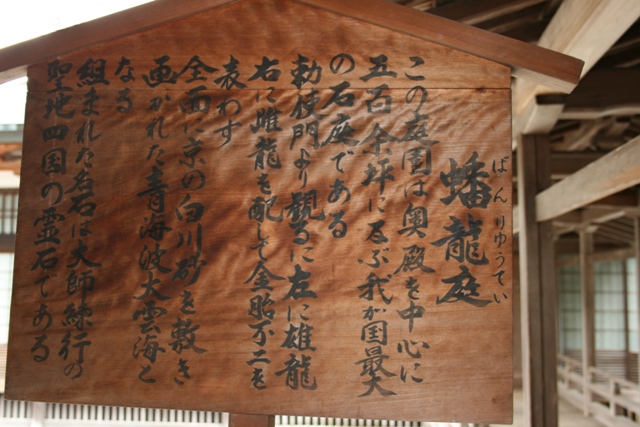 ばんりゆうてい
蟠龍庭
この庭園は奥殿を中心に
五百余坪に忍ぶ我が国最大
の石庭である
勅使門より観るに左に雄龍
右に雌龍を配して金胎不二を
表わす
全面に京の白川砂を敷き
画かれた青海波大雲海と
なる
組まれた名石は大師練行の
聖地四国の霊石である